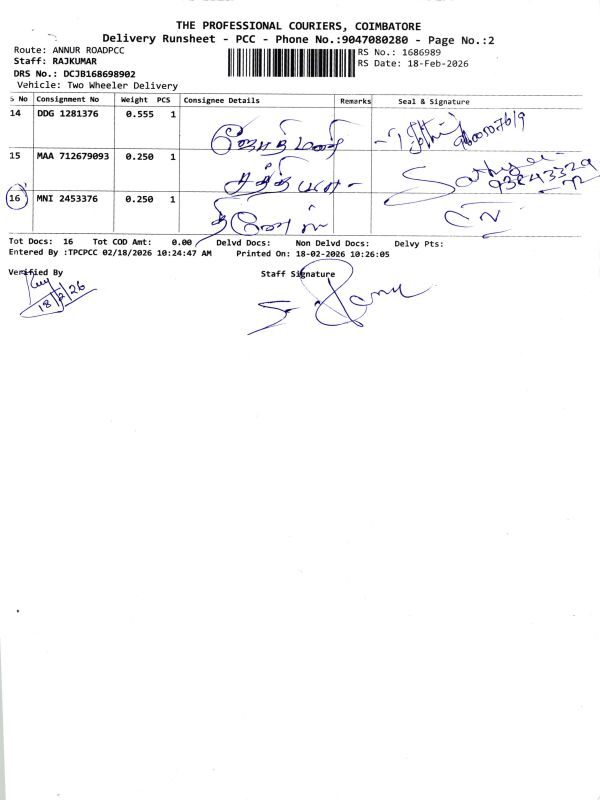 THE PROFESSIONAL COURIERS, COIMBATORE
Delivery Runsheet - PCC - Phone No.:9047080280 - Page No.:2
Route: ANNUR ROADPCC
Staff: RAJKUMAR
DRS No.: DCJB168698902
Vehicle: Two Wheeler Delivery
RS No.: 1686989
RS Date: 18-Feb-2026
S No Consignment No Weight PCS Consignee Details Remarks Seal & Signature
14 DDG 1281376 0.555 1 ஜோதிமணி
15 MAA 712679093 0.250 1
16 MNI 2453376 0.250 1
Tot Docs: 16 Tot COD Amt: 0.00 Delvd Docs: Non Delvd Docs: Delvy Pts:
Entered By :TPCPCC 02/18/2026 10:24:47 AM Printed On: 18-02-2026 10:26:05
Verified By Staff Signature
18/2/26